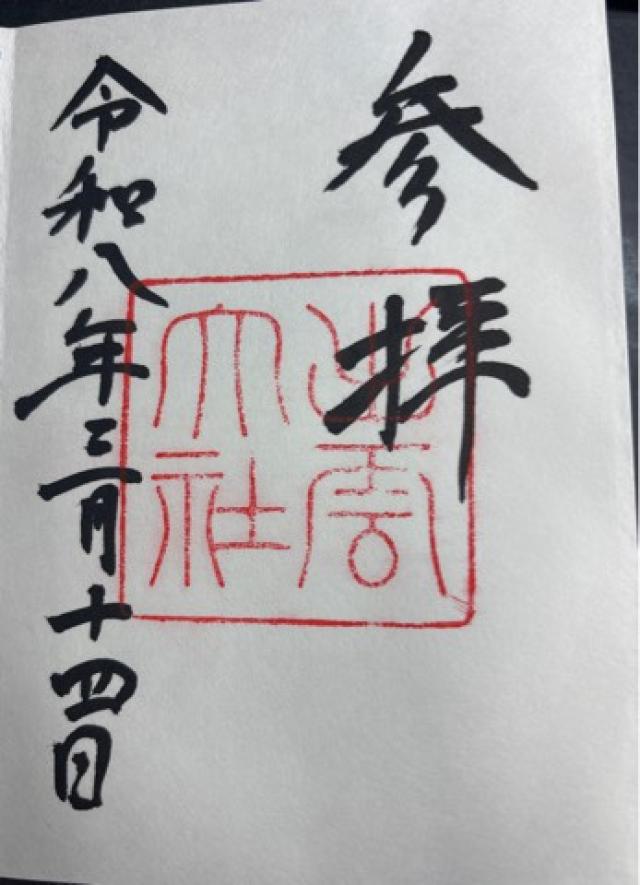 参拝
出雲大社
令和八年三月十四日